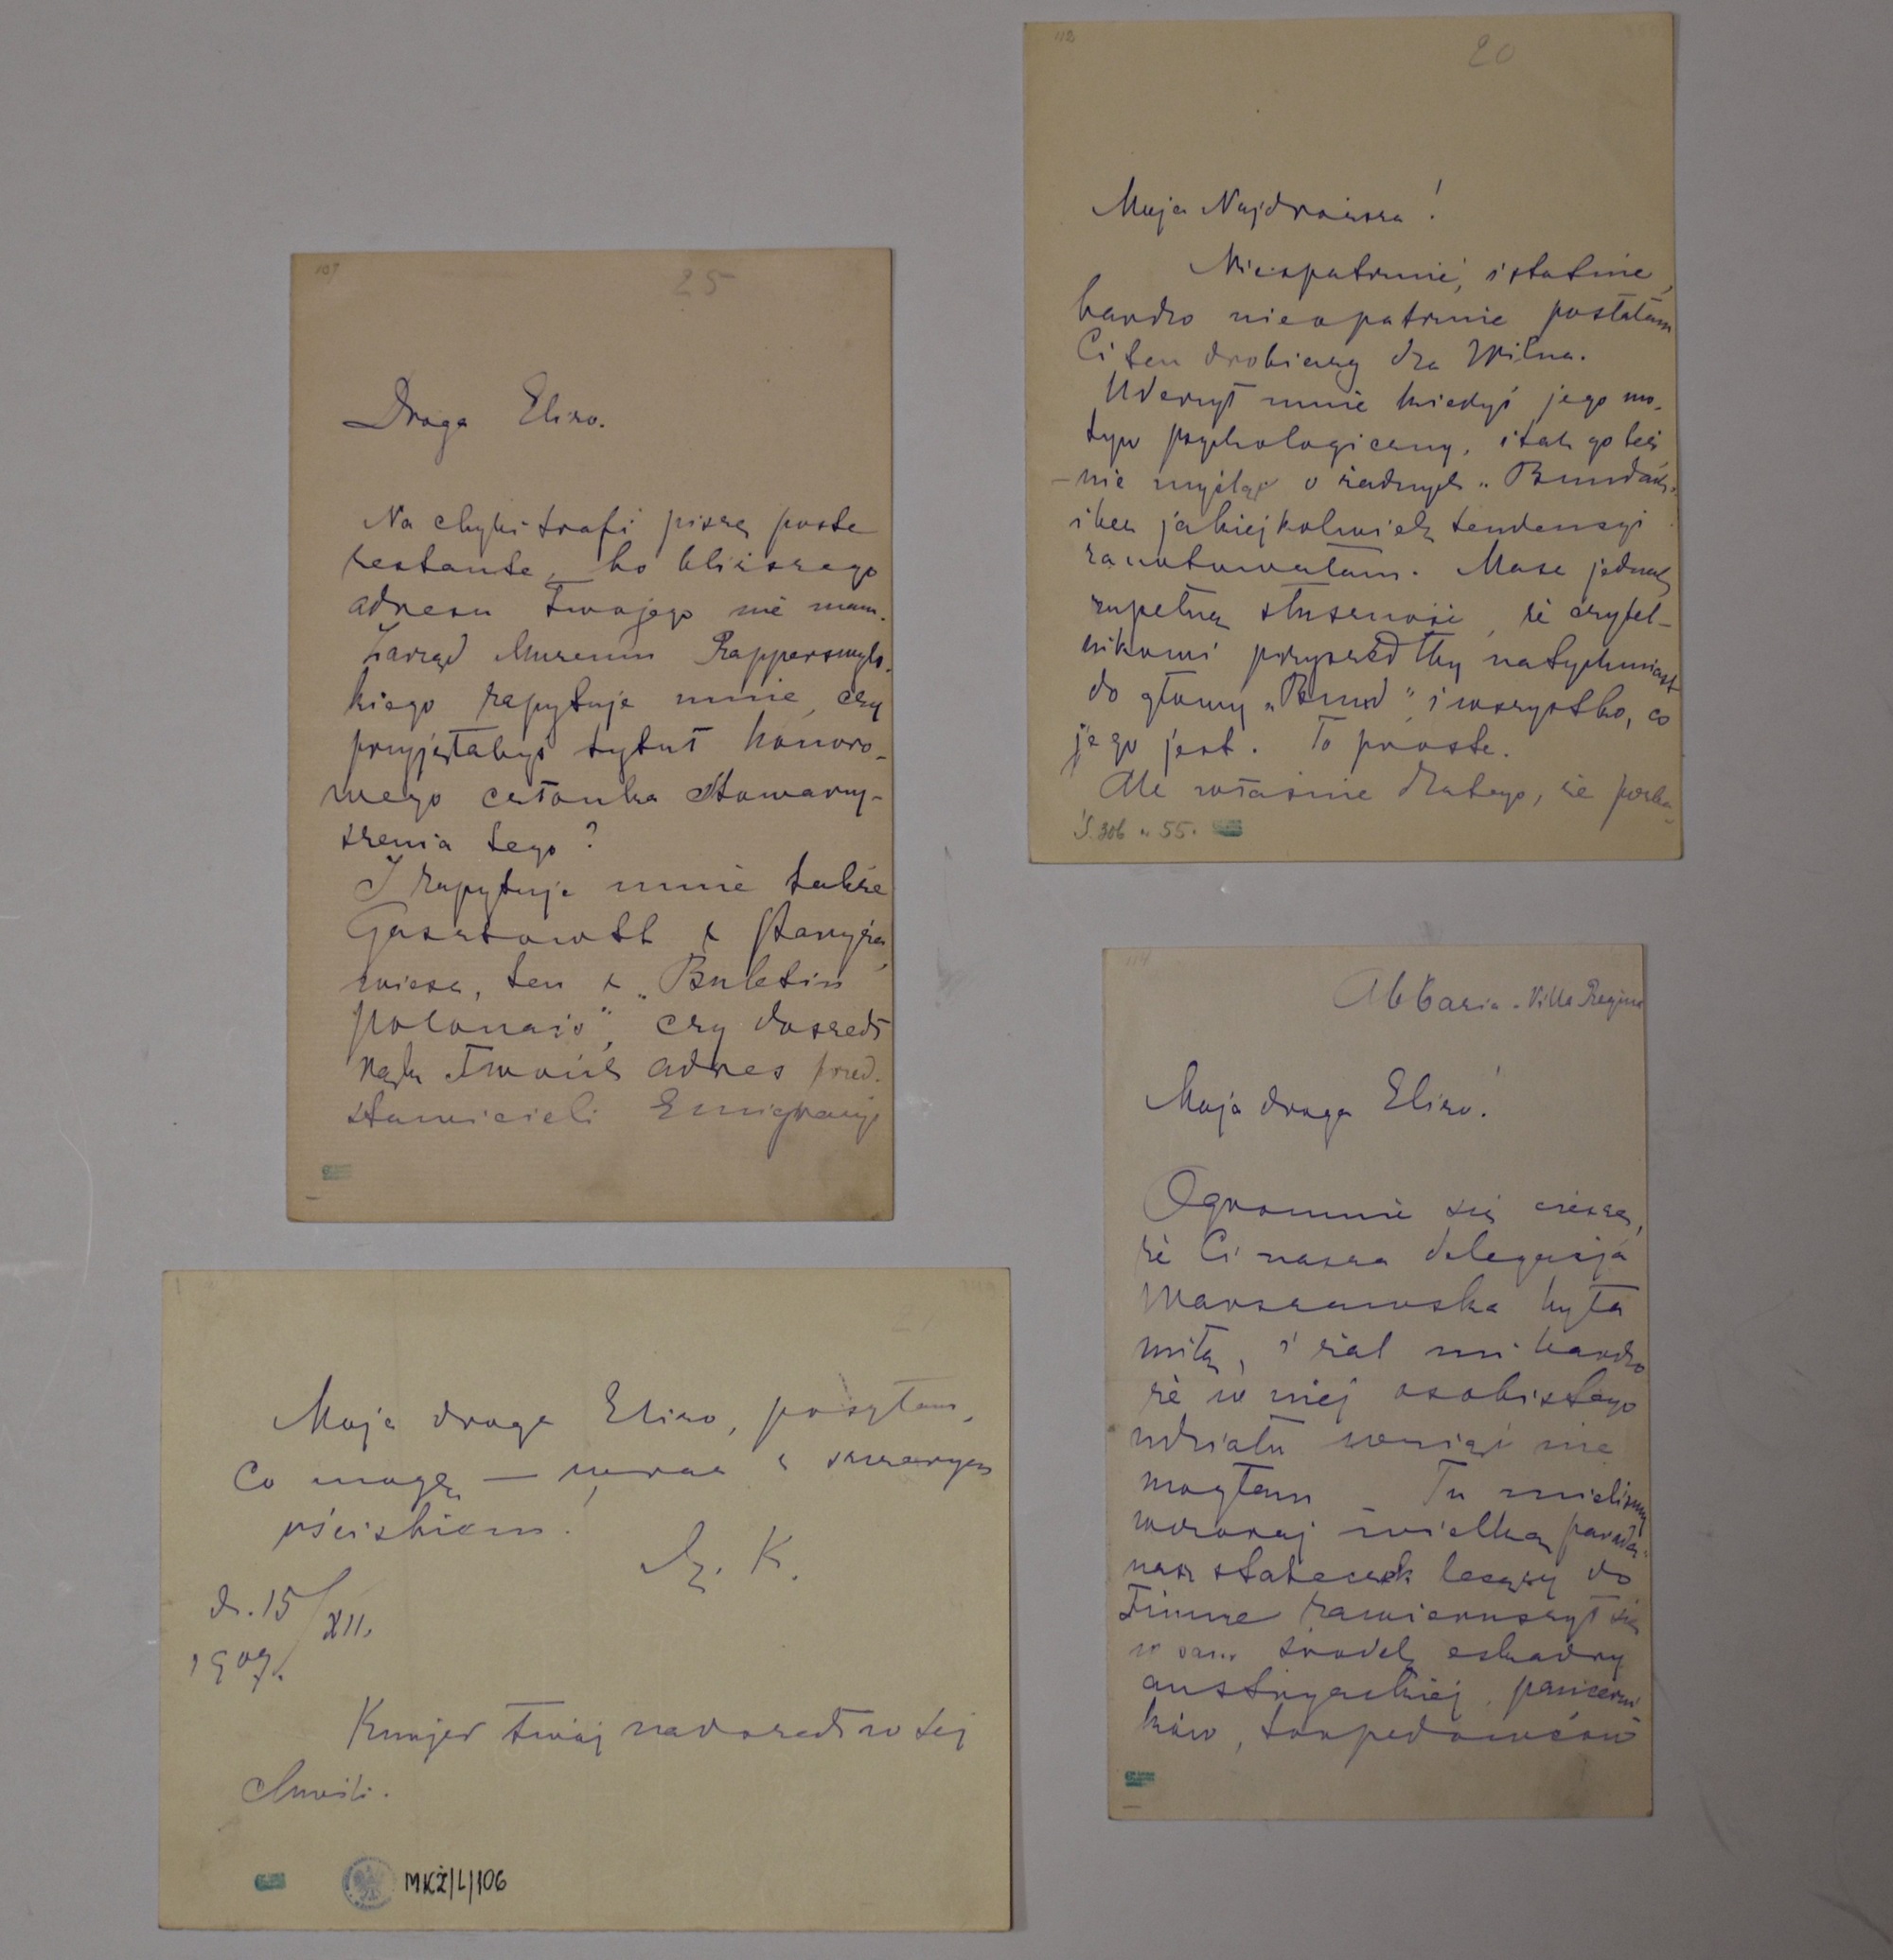 107
25
Droga Elizo.
Na chybi trafi piszę poste
restante, bo bliższego
adresu Twojego nie mam.
Zarząd Muzeum Rapperswyls-
kiego zapytuje mnie, czy
przyjęłabyś tytuł honoro-
wego członka Stowarzy-
szenia tego?
I zapytuje mnie także
Gasztowtt z Paryża,
wiesz, ten z „Buletin
polonais", czy doszedł
rąk Twoich adres przed-
stawicieli Emigracyi
112
20
Moja Najdroższa!
Nieopatrznie, istotnie,
bardzo nieopatrznie posłałam
Ci ten drobiazg dla Wilna.
Uderzył mnie kiedyś jego mo-
tyw psychologiczny, i tak go też
– nie myśląc o żadnych „Bundach"
i bez jakiejkolwiek tendencyi
zanotowałam. Masz jednak
zupełną słuszność, że czytel-
nikowi przyszedłby natychmiast
do głowy „Bund" i wszystko, co
jego jest. To proste.
Ale właśnie dlatego, że
S. 306 n 55.
114
Abbazia - Villa Regina
Moja droga Elizo!
Ogromnie się cieszę,
że Ci nasza delegacja
Warszawska była
miłą, i żal mi bardzo
że w niej osobistego
udziału wziąć nie
mogłam – Tu mieliśmy
wczoraj wielką paradę.
nasz stateczek lecący do
Fiume zawieruszył się
w sam środek eskadry
austryackiej, pancerni-
ków, torpedowców
Moja droga Elizo, posyłam,
co mogę — wraz z szczerym
uściskiem.
M. K.
d. 15/XII.
1907.
Kurjer Twój nadszedł w tej
chwili.
MKŻ/L/106